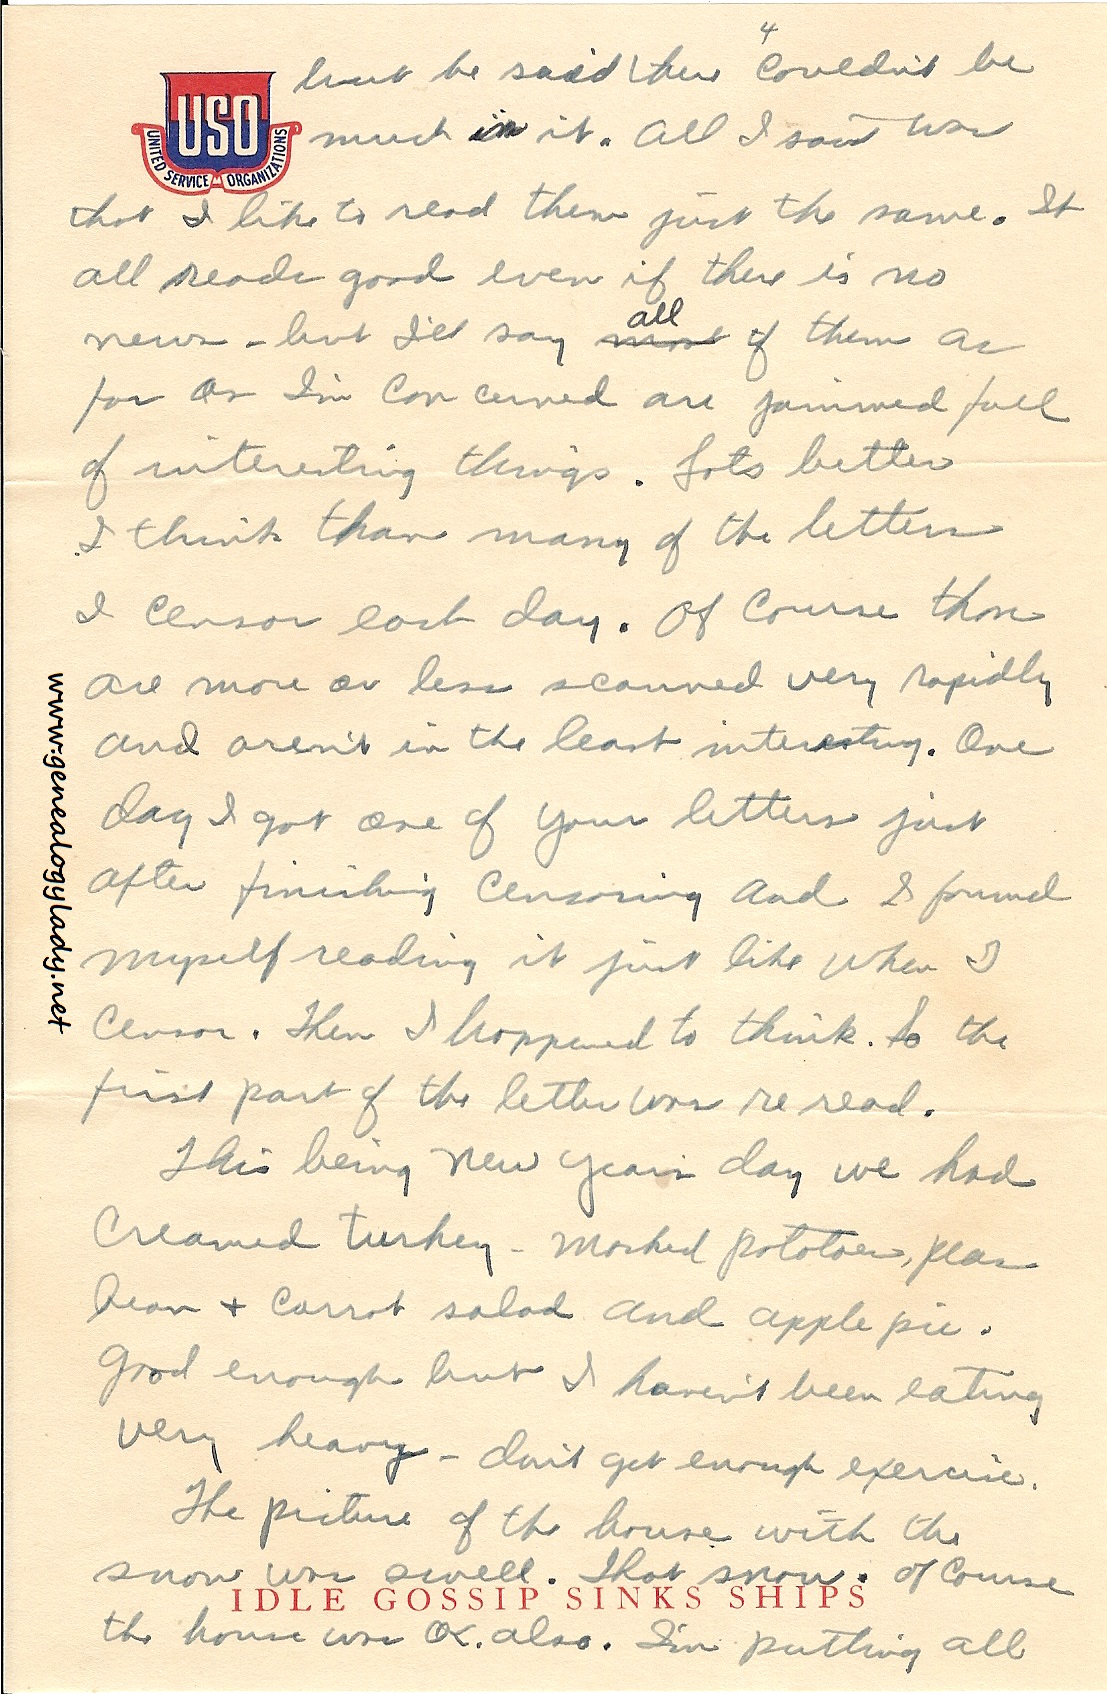 4
USO
UNITED SERVICE ORGANIZATIONS
but he said there couldn't be
much in it. All I said was
that I like to read them just the same. It
all reads good even if there is no
news - but I'll say most all of them as
far as I'm concerned are jammed full
of interesting things. Lots better
I think than many of the letters
I censor each day. Of course those
are more or less scanned very rapidly
and aren't in the least interesting. One
day I got one of your letters just
after finishing censoring and I found
myself reading it just like when I
censor. Then I happened to think. So the
first part of the letter was re read.
This being New Years day we had
creamed turkey - mashed potatoes, peas
bean + carrot salad and apple pie.
Good enough but I haven't been eating
very heavy - don't get enough exercise.
The picture of the house with the
snow was swell. That snow. Of course
IDLE GOSSIP SINKS SHIPS
the house was OK. also. I'm putting all
www.genealogylady.net